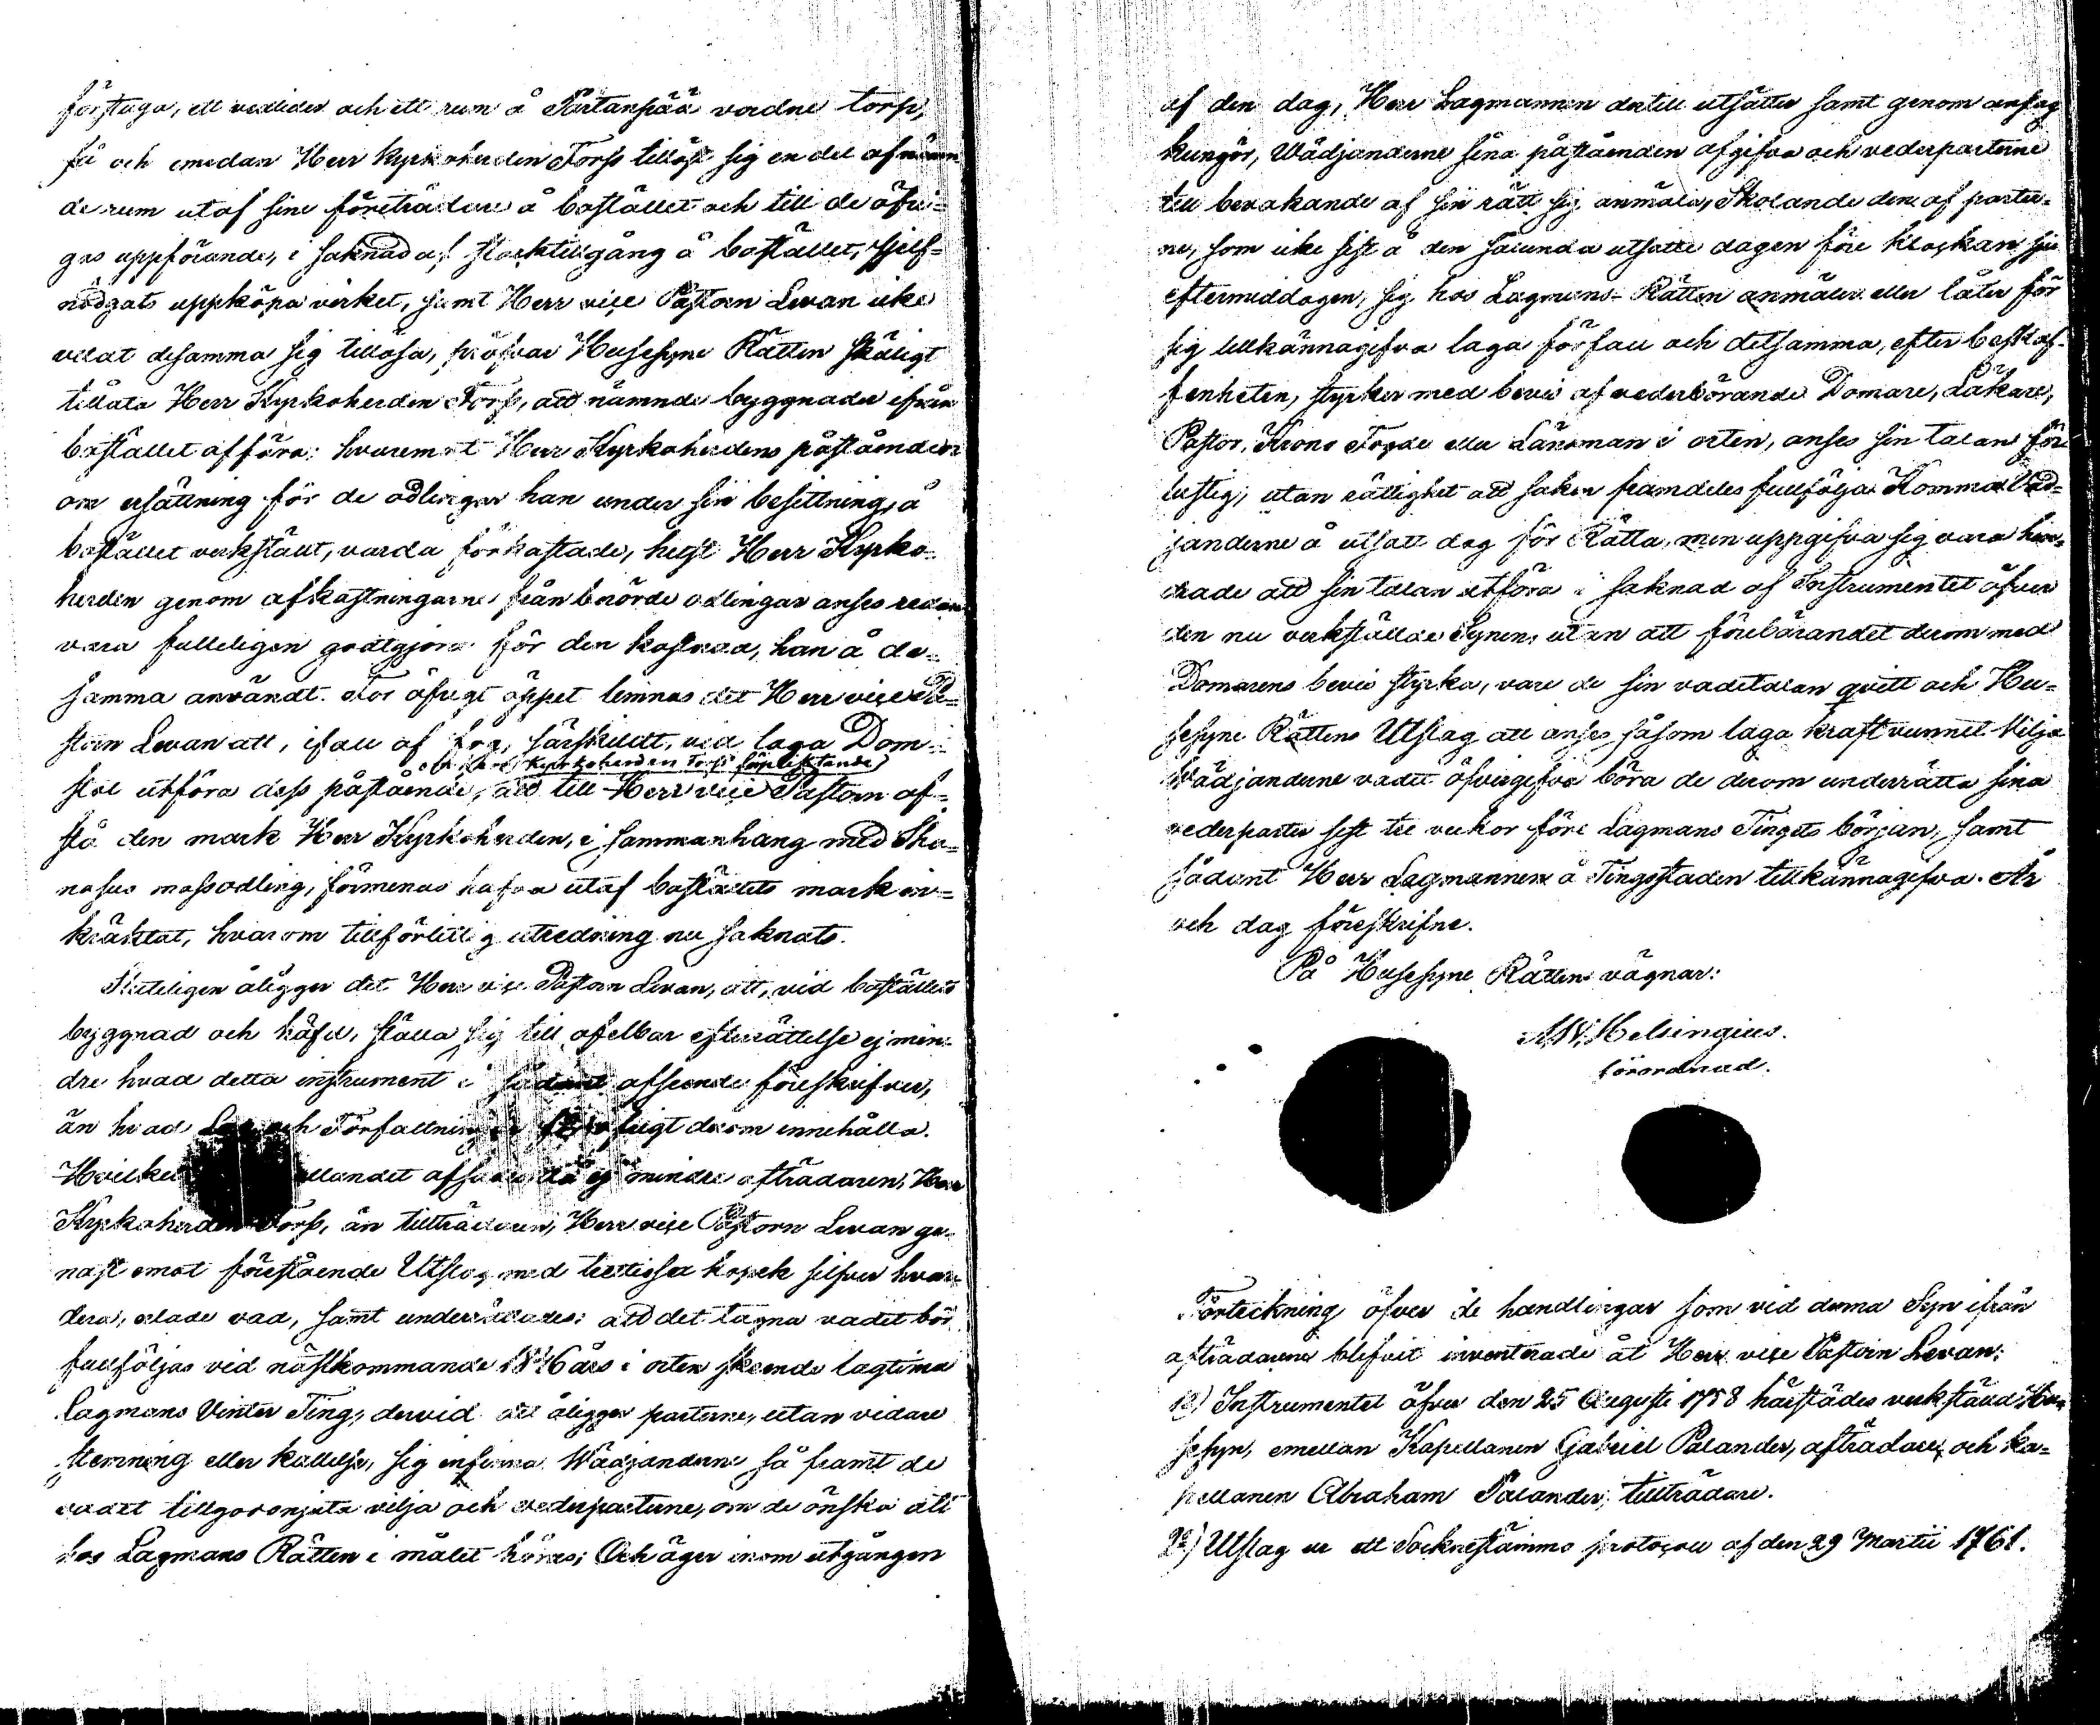 förstuga, ett vedlider och ett rum å Partanpää vordne torp,
så och emedan Herr Kyrkoherden Torp tillöst sig en del afnämn
de rum utaf sine företrädare å bostället och till de öfri=
gas uppförande, i saknad af stocktillgång å bostället, sjelf=
nödgats uppköpa virket, samt Herr vice Pastorn Levan icke
velat desamma sig tillösa, pröfvar Husesyne Rätten skäligt
tillåta Herr Kyrkoherden Torp, att nämnde byggnader ifrån
bostället afföra; hvaremot Herr Kyrkoherdens påståenden
om ersättning för de odlingar han under sin besittning å
bostället verkställt, varda förkastade, helst Herr Kyrko=
herden genom afkastningarne från berörde odlingar anses redan
vara fulleligen godtgjord för den kostnad, han å de=
samma användt. För öfrigt öppet lemnas det Herr vice Pa=
storn Levan att, i fall af fog, särskildt, vid laga Dom=
Kyrkoherden Torps förpliktande
stol utföra dess påstående, att till Herr vice Pastorn af=
stå den mark Herr Kyrkoherden, i sammanhang med Sko=
nasuo mossodling, förmenas hafva utaf boställets mark in=
kräktat, hvarom tillförlitlig utredning nu saknats.
Sluteligen åligger det Herr vice Pastorn Levan, att, vid boställets
byggnad och häfd, ställa sig till ofelbar efterrättelse ej min=
dre hvad detta instrument i sådant afseende föreskrifver,
än hvad Lag och Författningar för öfrigt derom innehålla.
mindre afträdaren, Herr
Kyrkoherden Torp, än tillträdaren, Herr vice Pastorn Levan ge=
nast emot förestående Utslag med trettiosex kopek silfver hvar=
dera, erlade vad, samt underrättades: att det tagna vadet bör
fullföljas vid nästkommande 1846 års i orten skeende lagtima
Lagmans Vinter Ting, dervid det åligger parterne, utan vidare
stemning eller kallelse, sig infinna Wädjanderne så framt de
vadet tillgodonjuta vilja och vederparterne, om de önska att
hos Lagmans Rätten i målet höras; Och äger inom utgången
af den dag, Herr Lagmannen dertill utsätter samt genom anslag
kungör, Wädjanderne sina påståenden afgifva och vederparterne
till bevakande af sin rätt sig anmäla, Skolande den af parter=
ne, som icke sist å den sålunda utsatte dagen före klockan sju
eftermiddagen, sig hos Lagmans=Rätten anmäler eller låter för
sig tillkännagifva laga förfall och detsamma, efter beskaf=
fenheten, styrker med bevis af vederbörande Domare, Läkare,
Pastor, Krono Fogde eller Länsman i orten, anses sin talan för
lustig, utan rättighet att saken framdeles fullfölja Komma Wäd=
janderne å utsatt dag för Rätta, men uppgifva sig vara hin=
drade att sin talan utföra i saknad af Instrumentet öfver
den nu verkställde Synen, utan att förebärandet derom med
Domarens bevis styrka, vare de sin vadetalan qvitt och Hu=
sesyne Rättens Utslag att anses såsom laga kraft vunnet. Vilja
Wädjanderne vadet öfvergifva böra de derom underrätta sina
vederparter sist tre veckor före Lagmans Tingets början, samt
sådant Herr Lagmannen å Tingsstaden tillkännagifva. År
och dag föreskrifne.
På Husesyne Rättens vägnar:
A.W. Helsingius.
förordnad.
Förteckning öfver de handlingar som vid denna Syn ifrån
afträdarene blifvit inventerade åt Herr vice Pastorn Levan:
1o) Instrumentet öfver den 25 Augusti 1758 härstädes verkställd Hu=
sesyn, emellan Kapellanen Gabriel Palander, afträdare, och ka=
pellanen Abraham Palander, tillträdare.
2o) Utslag ur ett Sockenstämmo protocoll af den 29 Martii 1761.